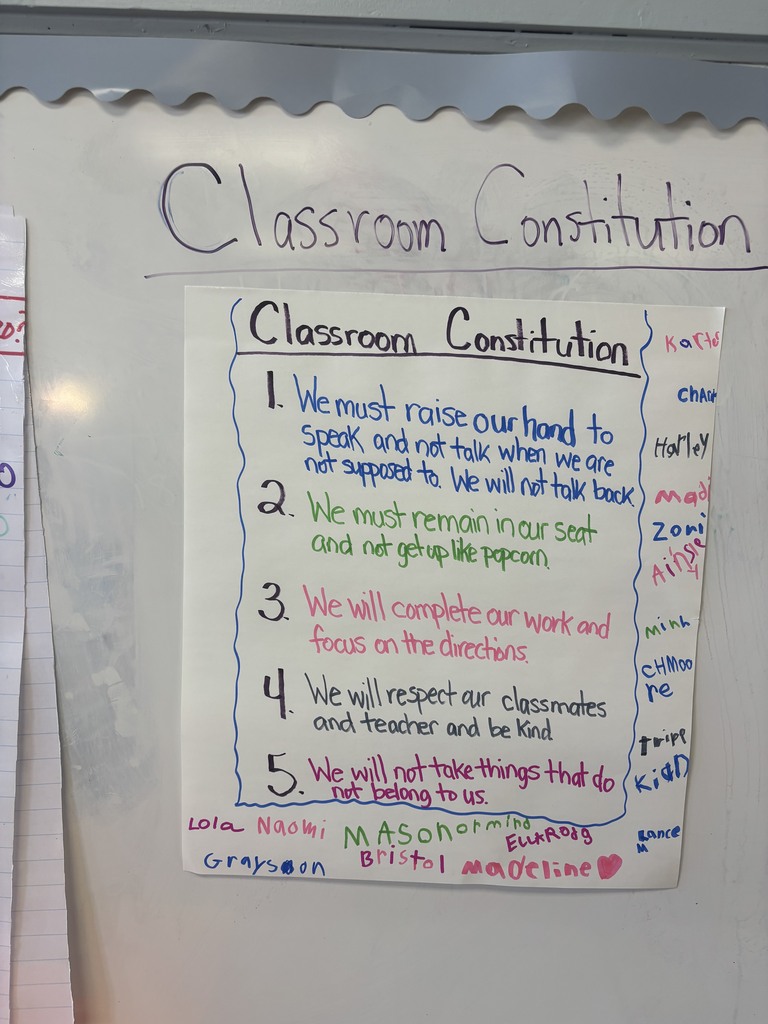 Classroom Constitution
Classroom Constitution
1. We must raise our hand to
speak and not talk when we are
not supposed to. We will not talk back.
2. We must remain in our seat
and not get up like popcorn.
3. We will complete our work and
focus on the directions.
4. We will respect our classmates
and teacher and be kind
5. We will not take things that do
not belong to us.
Harley
Madi
Zori
Minh
CHMoo
re
Tripp
Lola
Naomi
Bristol
Grayson
madeline
Rance
M